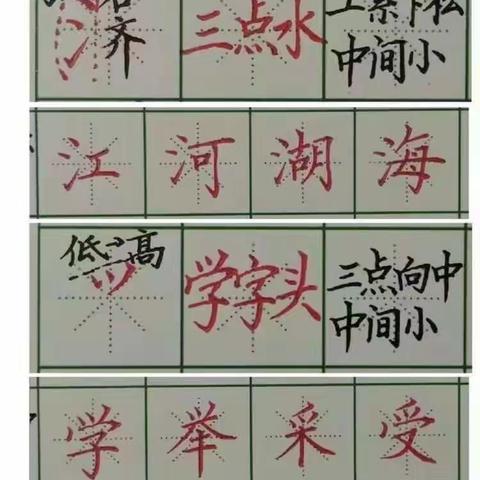 右齐 三点水 上紧下松
中间小
江 河 湖 海
低 高 学字头 三点向中
中间小
学 举 采 受